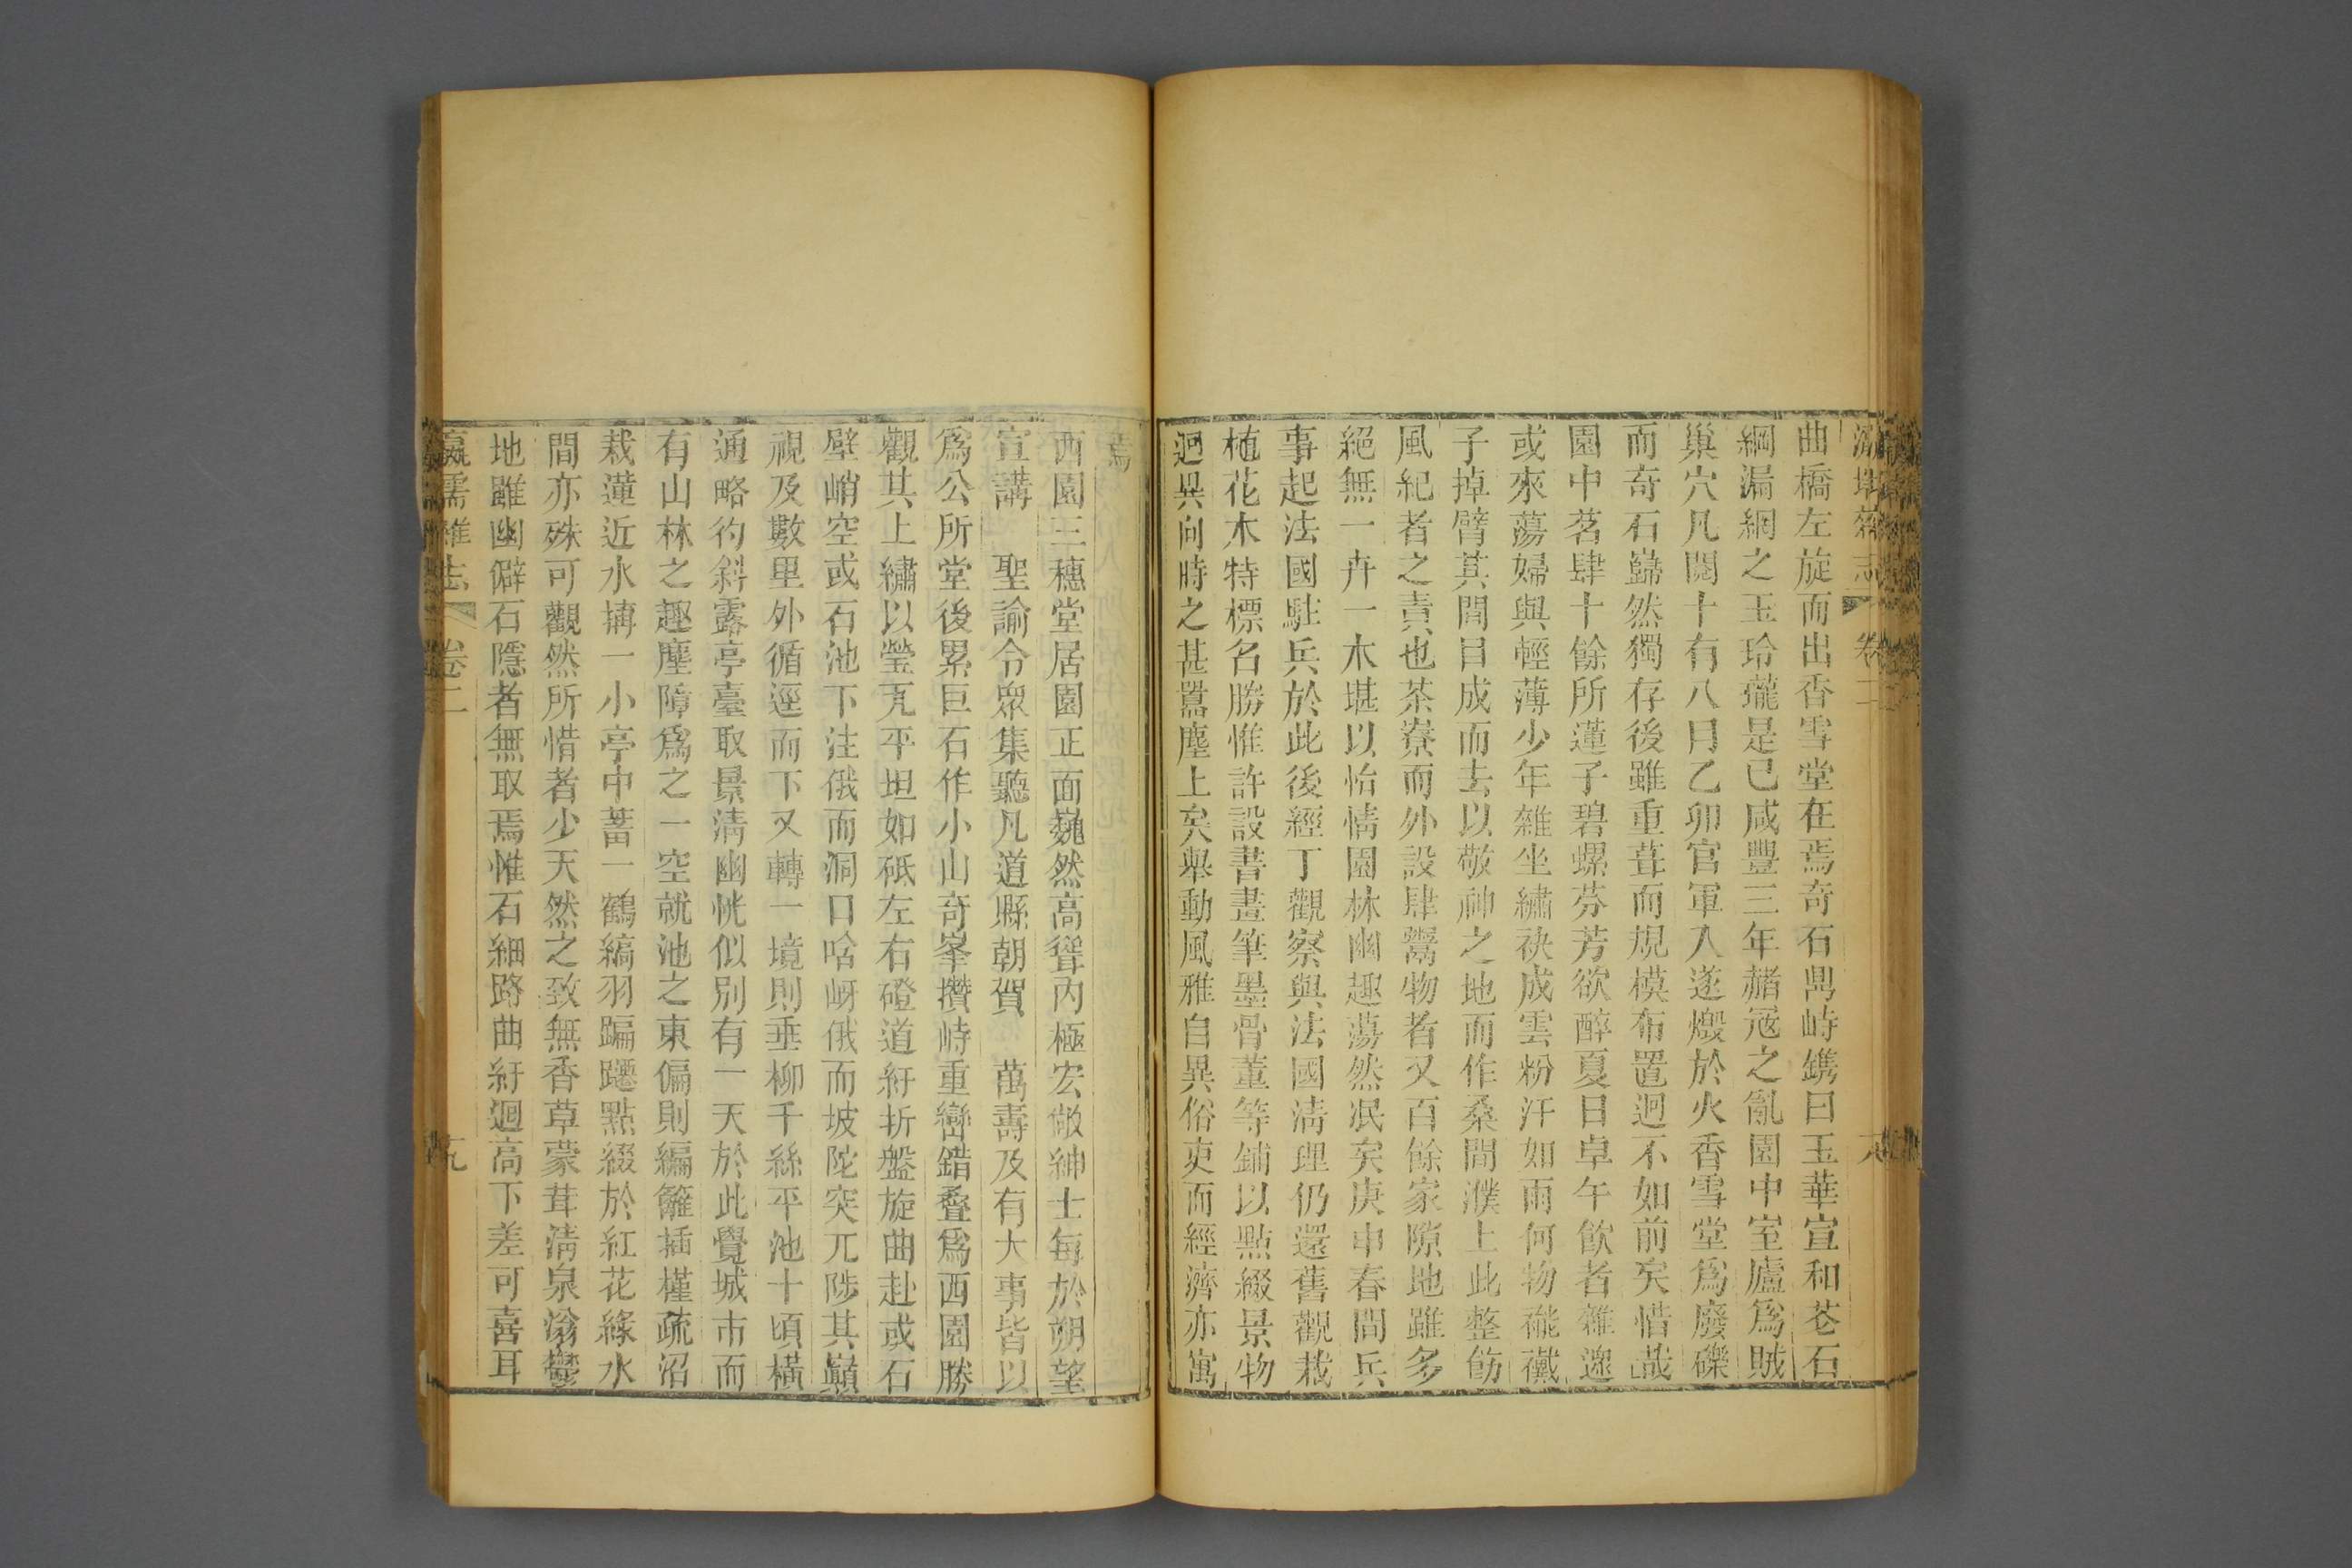 瀛壖雜志 卷二 六
曲橋左旋而出香雪堂在焉奇石鼎峙鐫曰玉華宣和苍石
綱漏網之玉玲瓏是已咸豐三年赭冦之亂園中室廬爲賊
巢穴凡閱十有八月乙卯官軍入遂燬於火香雪堂爲廢礫
而奇石巋然獨存後雖重葺而規模布置迥不如前矣惜哉
園中茗肆十餘所蓮子碧螺芬芳欲醉夏日卓午飲者雜遝
或來蕩婦與輕薄少年雜坐繡袂成雲粉汗如雨何物褦襶
子掉臂其間目成而去以敬神之地而作桑間濮上此整飭
風紀者之責也茶寮而外設肆鬻物者又百餘家隙地雖多
絕無一卉一木堪以怡情園林幽趣蕩然泯矣庚申春間兵
事起法國駐兵於此後經丁觀察與法國清理仍還舊觀栽
植花木特標名勝惟許設書畫筆墨骨董等鋪以點綴景物
迥異向時之甚囂塵上矣舉動風雅自異俗吏而經濟亦寓
焉
西園三穗堂居園正面巍然高聳内極宏敞紳士每於朔望
宣講　聖諭令眾集聽凡道縣朝賀　萬壽及有大事皆以
爲公所堂後累巨石作小山奇峯攢峙重巒錯叠爲西園勝
觀其上繡以瑩瓦平坦如砥左右磴道紆折盤旋曲赴或石
壁峭空或石池下注俄而洞口唅岈俄而坡陀突兀陟其巔
視及數里外循逕而下又轉一境則垂柳千絲平池十頃橫
通略彴斜露亭臺取景清幽恍似別有一天於此覺城市而
有山林之趣塵障爲之一空就池之東偏則編籬插槿疏沼
栽蓮近水搆一小亭中蓄一鶴縞羽蹁躚點綴於紅花綠水
間亦殊可觀然所惜者少天然之致無香草蒙茸清泉滃鬱
地雖幽僻石隱者無取焉惟石細路曲紆迴高下差可喜耳
瀛壖雜志 卷二 九